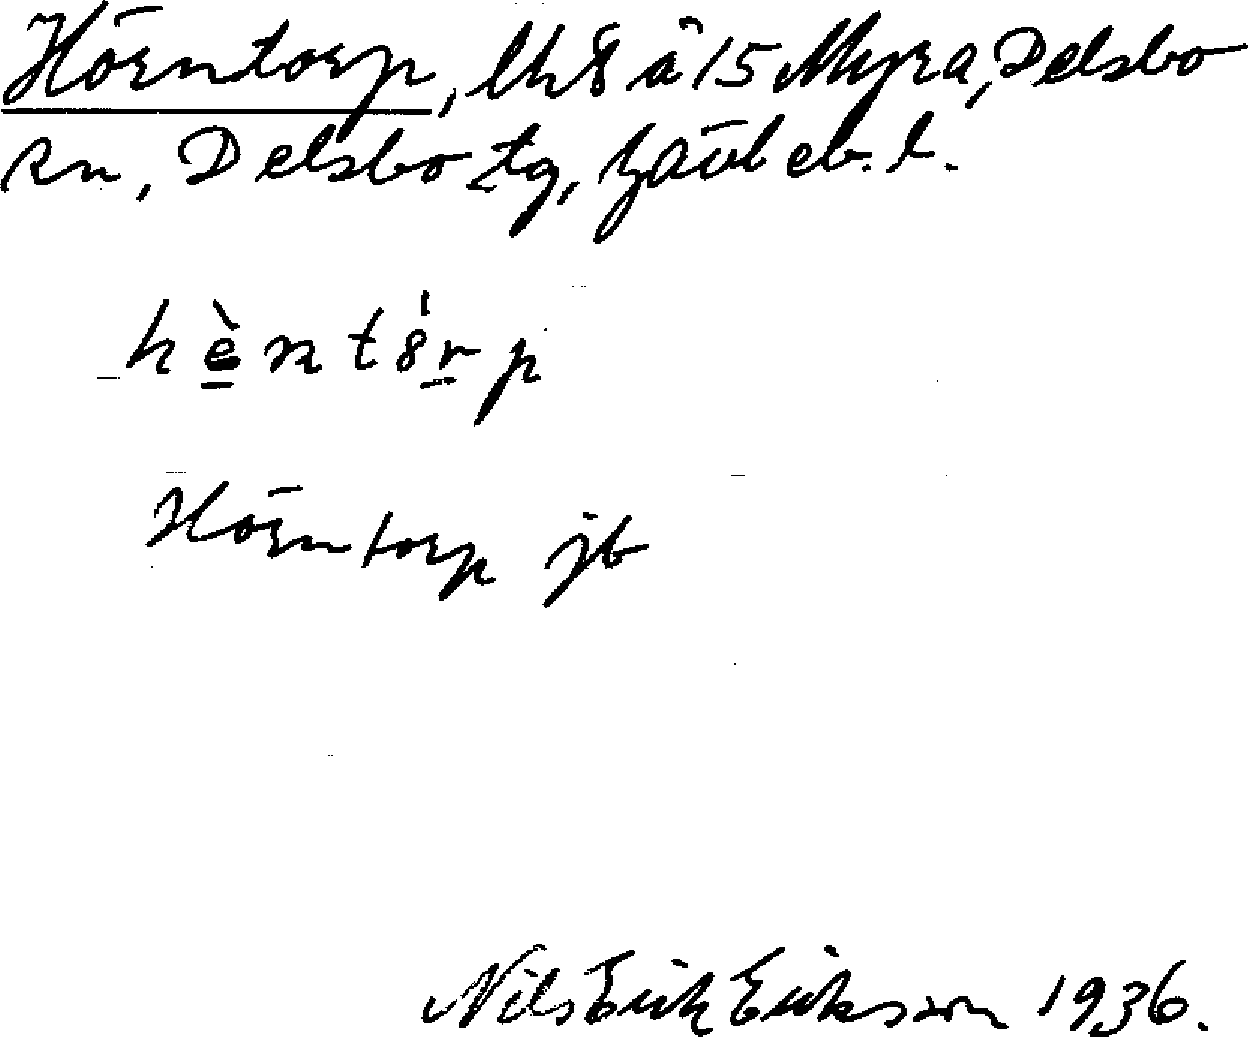 Hörntorp, lh 8 å 15 Myra, Delsbo
sn, Delsbo tg, Gävleb. l.
hèntórp
Hörntorp jb
Nils Erik Eriksson 1936.